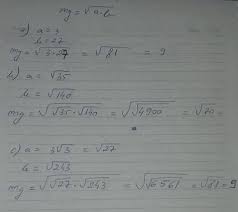 mg = √a·b
a) a = 3
b = 27
mg = √3·27 = √81 = 9
b) a = √35
b = √140
mg = √√35·√140 = √√4900 = √70 =
c) a = 3√3 = √27
b = √243
mg = √√27·√243 = √√6561 = √81 = 9